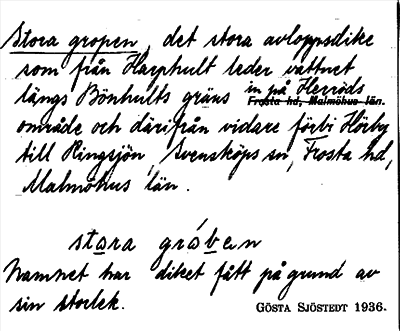 Stora gropen, det stora avloppsdike
som från Harphult leder vattnet
längs Bönhults gräns in på Herröds
Frosta hd, Malmöhus län.
område och därifrån vidare förbi Hörby
till Ringsjön, Svensköps sn, Frosta hd,
Malmöhus län.
stara gråben
Namnet har diket fått på grund av
sin storlek.
GÖSTA SJÖSTEDT 1936.